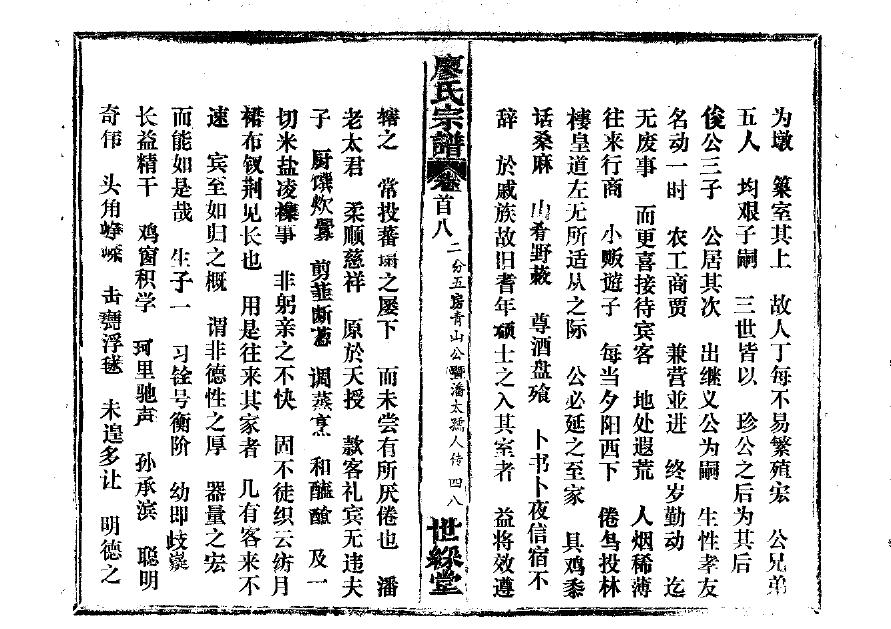 为墩 筑室其上 故人丁每不易繁殖宏 公兄弟
五人 均艰子嗣 三世皆以 珍公之后为其后
俊公三子 公居其次 出继义公为嗣 生性孝友
名动一时 农工商贾 兼营並进 终岁勤动 迄
无废事 而更喜接待宾客 地处遐荒 人烟稀薄
往来行商 小贩遊子 每当夕阳西下 倦鸟投林
棲皇道左无所适从之际 公必延之至家 具鸡黍
话桑麻 山肴野蔌 尊酒盘飧 卜书卜夜信宿不
辞 於戚族故旧耆年硕士之入其室者 益将效遵
廖氏宗譜 卷首八 二分五房青山公暨潘太孺人传 四八 世綵堂
辖之 常投蕃 之屡下 而未尝有所厌倦也 潘
老太君 柔顺慈祥 原於天授 款客礼宾无违夫
子 厨馔炊爨 剪韮断葱 调蒸烹 和醯醶 及一
切米盐凌襍事 非躬亲之不快 固不徒织云纺月
裙布钗荆见长也 用是往来其家者 几有客来不
速 宾至如归之概 谓非德性之厚 器量之宏
而能如是哉 生子一 习铨号衡阶 幼即歧嶷
长益精干 鸡窗积学 珂里驰声 孙承滨 聪明
奇伟 头角峥嵘 击甕浮毬 未遑多让 明德之